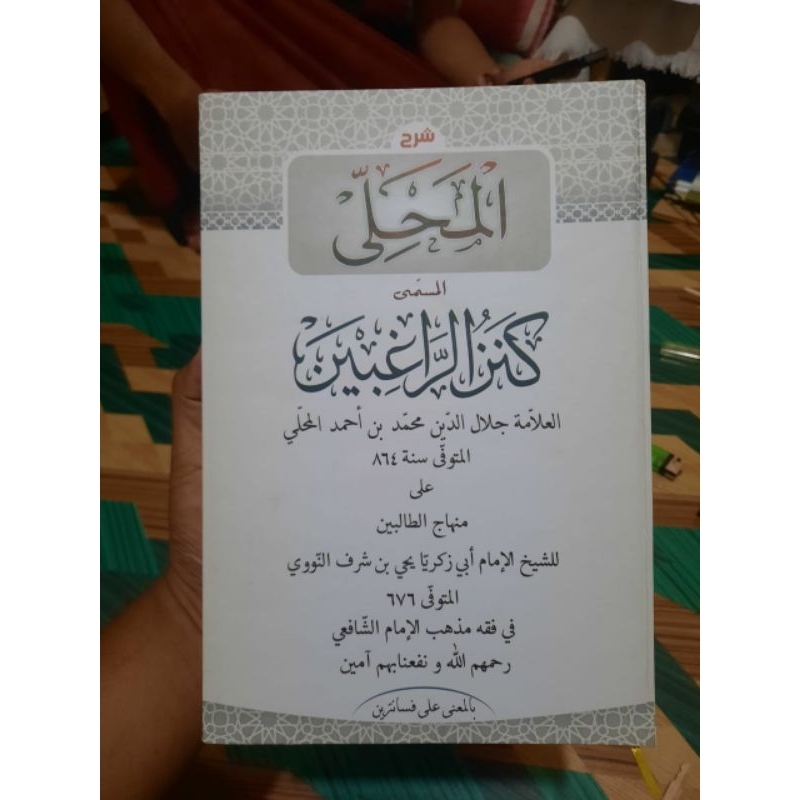 شرح
المَحَلِّى
المسمّى
كَنْزُ الرَّاغِبِينَ
العلاّمة جلال الدّين محمّد بن أحمد المحلّي
المتوفّى سنة ٨٦٤
على
منهاج الطالبين
للشيخ الإمام أبي زكريّا يحي بن شرف النّووي
المتوفّى ٦٧٦
في فقه مذهب الإمام الشّافعي
رحمهم الله و نفعنابهم آمين
بالمعنى على فسانترين